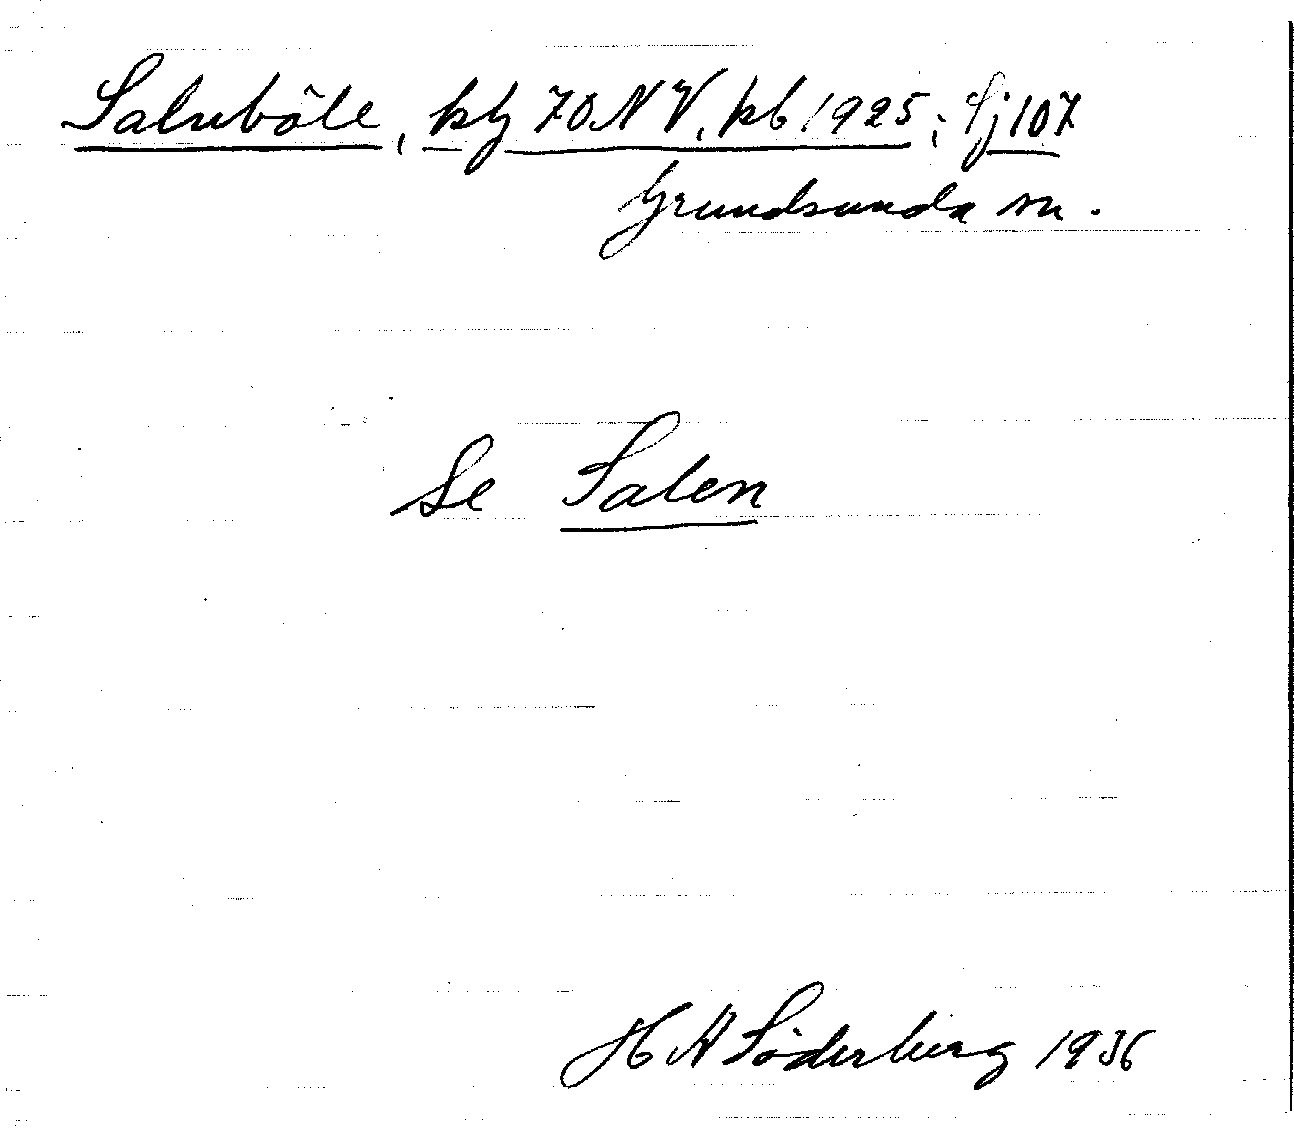 Salnböle, kbl 70 NV, kb 1925; Sj 107
Grundsunda sn.
Se Salen
H A Söderberg 1936